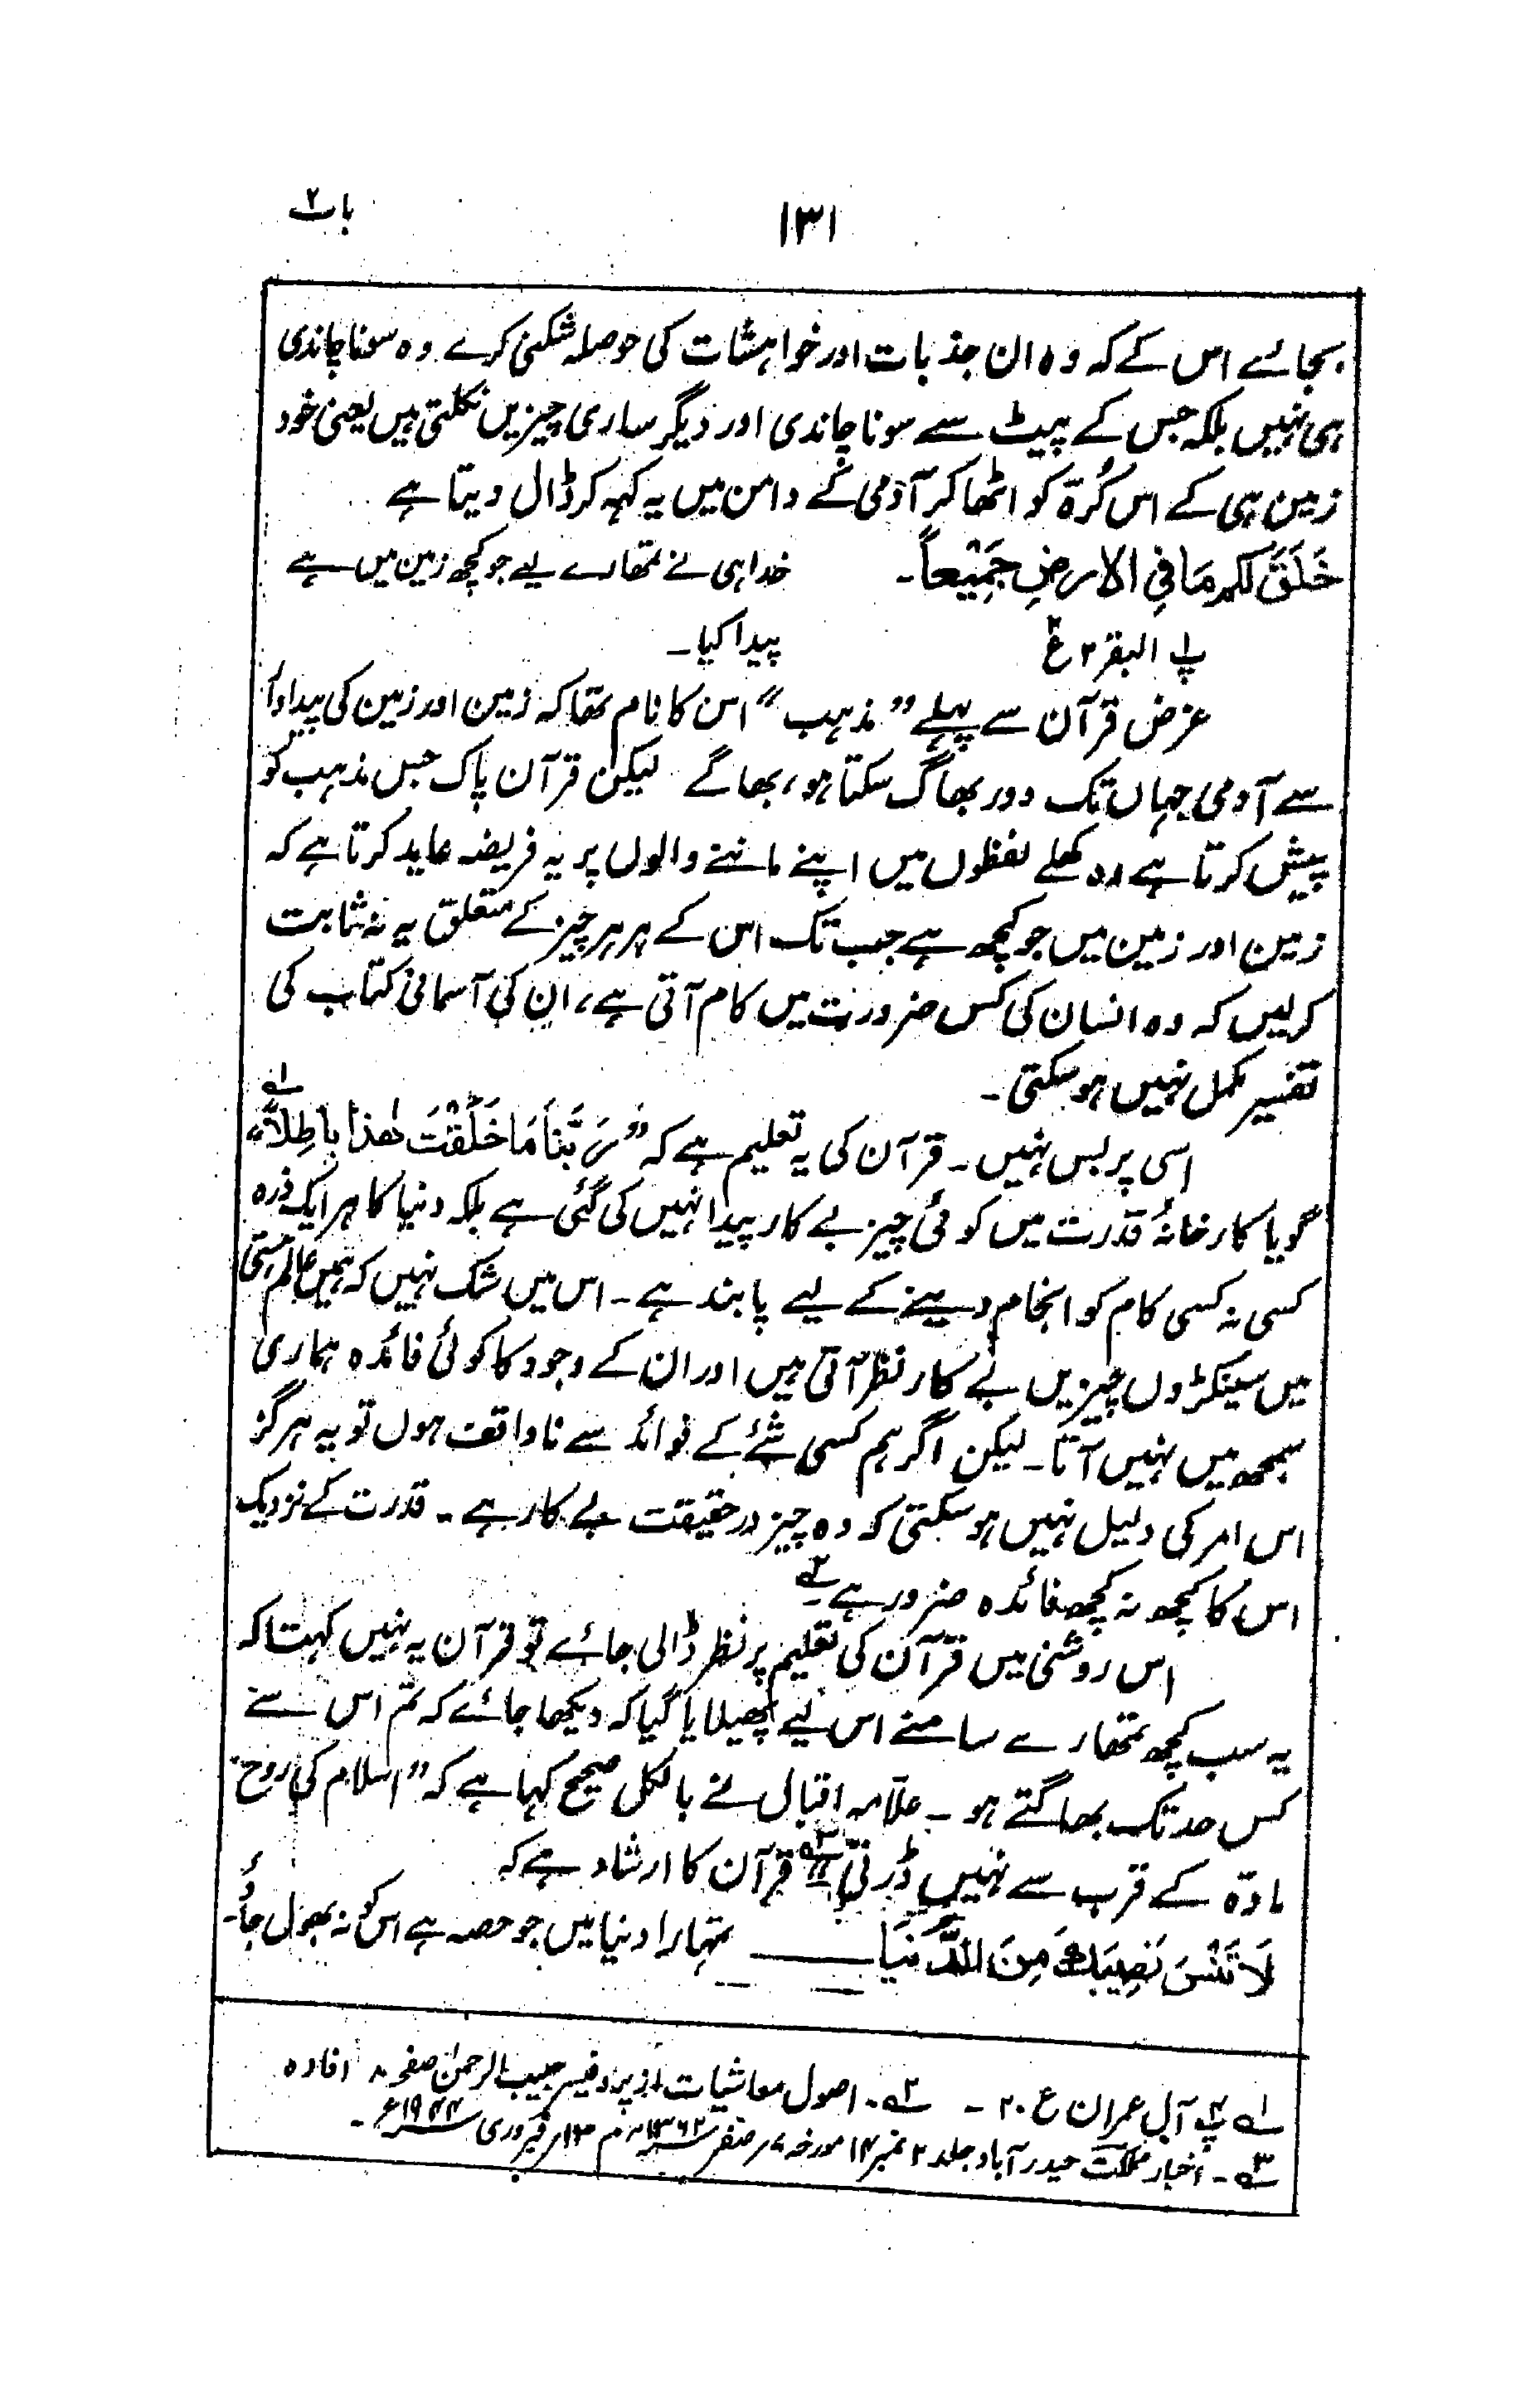 ۱۳۱
باب ۲
بجائے اس کے کہ وہ ان جذبات اور خواہشات کی حوصلہ شکنی کرے وہ سونا چاندی
ہی نہیں بلکہ جس کے پیٹ سے سونا چاندی اور دیگر ساری چیزیں نکلتی ہیں یعنی خود
زمین ہی کے اس کُرّہ کو اٹھا کر آدمی کے دامن میں یہ کہہ کر ڈال دیتا ہے
خَلَقَ لکم مَا فِی الارضِ جَمِیْعاً۔ خدا ہی نے تمھارے لیے جو کچھ زمین میں ہے
پ۱ البقر ۲ ع۳ پیدا کیا۔
غرض قرآن سے پہلے ”مذہب“ اس کا نام تھا کہ زمین اور زمین کی پیداوار
سے آدمی جہاں تک دور بھاگ سکتا ہو، بھاگے لیکن قرآن پاک جس مذہب کو
پیش کرتا ہے وہ کھلے لفظوں میں اپنے ماننے والوں پر یہ فریضہ عاید کرتا ہے کہ
زمین اور زمین میں جو کچھ ہے جب تک اس کے ہر ہر چیز کے متعلق یہ نہ ثابت
کرلیں کہ وہ انسان کی کس ضرورت میں کام آتی ہے، ان کی آسمانی کتاب کی
تفسیر مکمل نہیں ہوسکتی۔
اسی پر بس نہیں۔ قرآن کی یہ تعلیم ہے کہ ”رَبَّنَا مَا خَلَقْتَ ھٰذا بَاطِلاً“ ۱؎
گویا کارخانۂ قدرت میں کوئی چیز بے کار پیدا نہیں کی گئی ہے بلکہ دنیا کا ہر ایک ذرہ
کسی نہ کسی کام کو انجام دینے کے لیے پابند ہے۔ اس میں شک نہیں کہ ہمیں عالم ہستی
میں سینکڑوں چیزیں بے کار نظر آتی ہیں اور ان کے وجود کا کوئی فائدہ ہماری
سمجھ میں نہیں آتا۔ لیکن اگر ہم کسی شئے کے فوائد سے ناواقف ہوں تو یہ ہرگز
اس امر کی دلیل نہیں ہوسکتی کہ وہ چیز درحقیقت بے کار ہے۔ قدرت کے نزدیک
اس کا کچھ نہ کچھ فائدہ ضرور ہے۔ ۲؎
اس روشنی میں قرآن کی تعلیم پر نظر ڈالی جائے تو قرآن یہ نہیں کہتا کہ
یہ سب کچھ تمھارے سامنے اس لیے پھیلایا گیا کہ دیکھا جائے کہ تم اس سے
کس حد تک بھاگتے ہو۔ علاّمہ اقبال نے بالکل صحیح کہا ہے کہ ”اسلام کی روح
مادّہ کے قرب سے نہیں ڈرتی“ ۳؎ قرآن کا ارشاد ہے کہ
لَا تَنْسَ نَصِیبَكَ مِنَ الدُّنیَا ـــــ تمہارا دنیا میں جو حصہ ہے اس کو نہ بھول جاؤ۔
۱؎ پ۴ آلِ عمران ع ۲۰ ۔ ۲؎۔ اصول معاشیات از پروفیسر حبیب الرحمٰن صفحہ ۸ افادہ
۳؎۔ اخبار مملکت حیدرآباد جلد ۲ نمبر ۱۴ مورخہ ۷ ر صفر ۱۳۶۳ھ م ۱۳ ر فبروری ۱۹۴۴ع۔